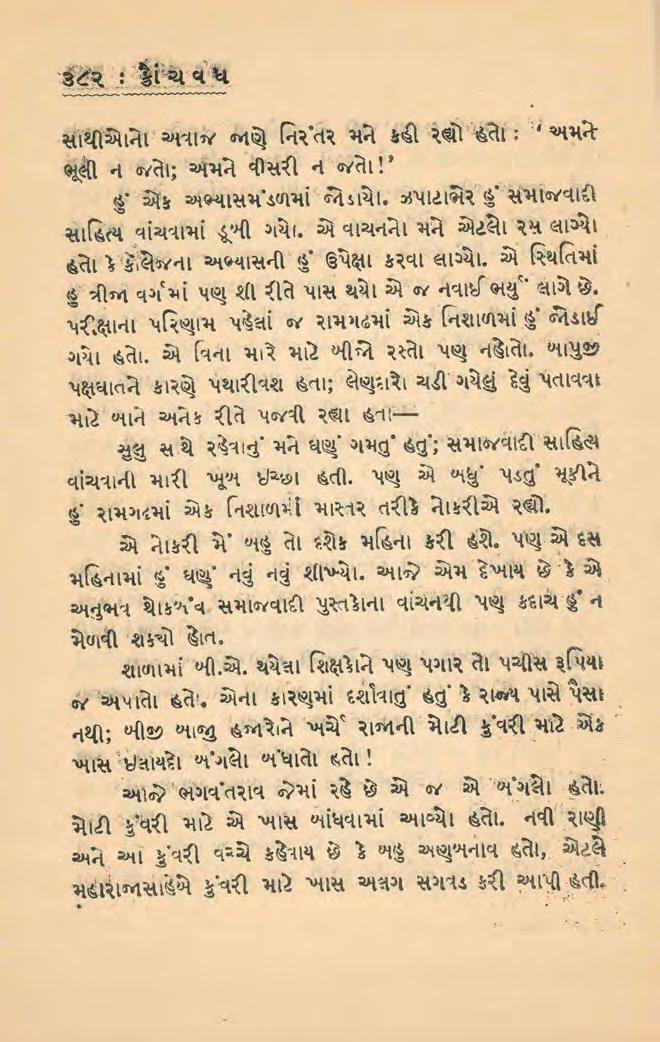 ૩૮૨ : ક્રૌંચવધ
સાથીઓનો અવાજ જાણે નિરંતર મને કહી રહ્યો હતો : ‘ અમને
ભૂલી ન જતો; અમને વીસરી ન જતો!’
હું એક અભ્યાસમંડળમાં જોડાયો. ઝપાટાભેર હું સમાજવાદી
સાહિત્ય વાંચવામાં ડૂબી ગયો. એ વાચનનો મને એટલો રસ લાગ્યો
હતો કે કૉલેજના અભ્યાસની હું ઉપેક્ષા કરવા લાગ્યો. એ સ્થિતિમાં
હું ત્રીજા વર્ગમાં પણ શી રીતે પાસ થયો એ જ નવાઈભર્યું લાગે છે.
પરીક્ષાના પરિણામ પહેલાં જ રામગઢમાં એક નિશાળમાં હું જોડાઈ
ગયો હતો. એ વિના મારે માટે બીજો રસ્તો પણ નહોતો. બાપુજી
પક્ષઘાતને કારણે પથારીવશ હતા; લેણદારો ચડી ગયેલું દેવું પતાવવા
માટે બાને અનેક રીતે પજવી રહ્યા હતા—
સુલુ સાથે રહેવાનું મને ઘણું ગમતું હતું; સમાજવાદી સાહિત્ય
વાંચવાની મારી ખૂબ ઇચ્છા હતી. પણ એ બધું પડતું મૂકીને
હું રામગઢમાં એક નિશાળમાં માસ્તર તરીકે નોકરીએ રહ્યો.
એ નોકરી મેં બહુ તો દશેક મહિના કરી હશે. પણ એ દસ
મહિનામાં હું ઘણું નવું નવું શીખ્યો. આજે એમ દેખાય છે કે એ
અનુભવ થોકબંધ સમાજવાદી પુસ્તકોના વાંચનથી પણ કદાચ હું ન
મેળવી શક્યો હોત.
શાળામાં બી.એ. થયેલા શિક્ષકોને પણ પગાર તો પચીસ રૂપિયા
જ અપાતો હતો. એના કારણમાં દર્શાવાતું હતું કે રાજ્ય પાસે પૈસા
નથી; બીજી બાજુ હજારોને ખર્ચે રાજાની મોટી કુંવરી માટે એક
ખાસ ઇલાયદો બંગલો બંધાતો હતો !
આજે ભગવંતરાવ જેમાં રહે છે એ જ એ બંગલો હતો.
મોટી કુંવરી માટે એ ખાસ બાંધવામાં આવ્યો હતો. નવી રાણી
અને આ કુંવરી વચ્ચે કહેવાય છે કે બહુ અણબનાવ હતો, એટલે
મહારાજાસાહેબે કુંવરી માટે ખાસ અલગ સગવડ કરી આપી હતી.